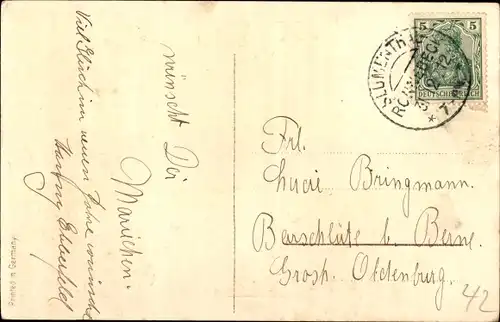 Viel Glück im neuen Jahre wünscht
wünscht Dir
Mariechen.
Printed in Germany
5 5
DEUTSCHES REICH
BLUMENTHAL
Frl.
Bringmann.
Barschlüte b. Berne.
Grosh. Oldenburg.
42